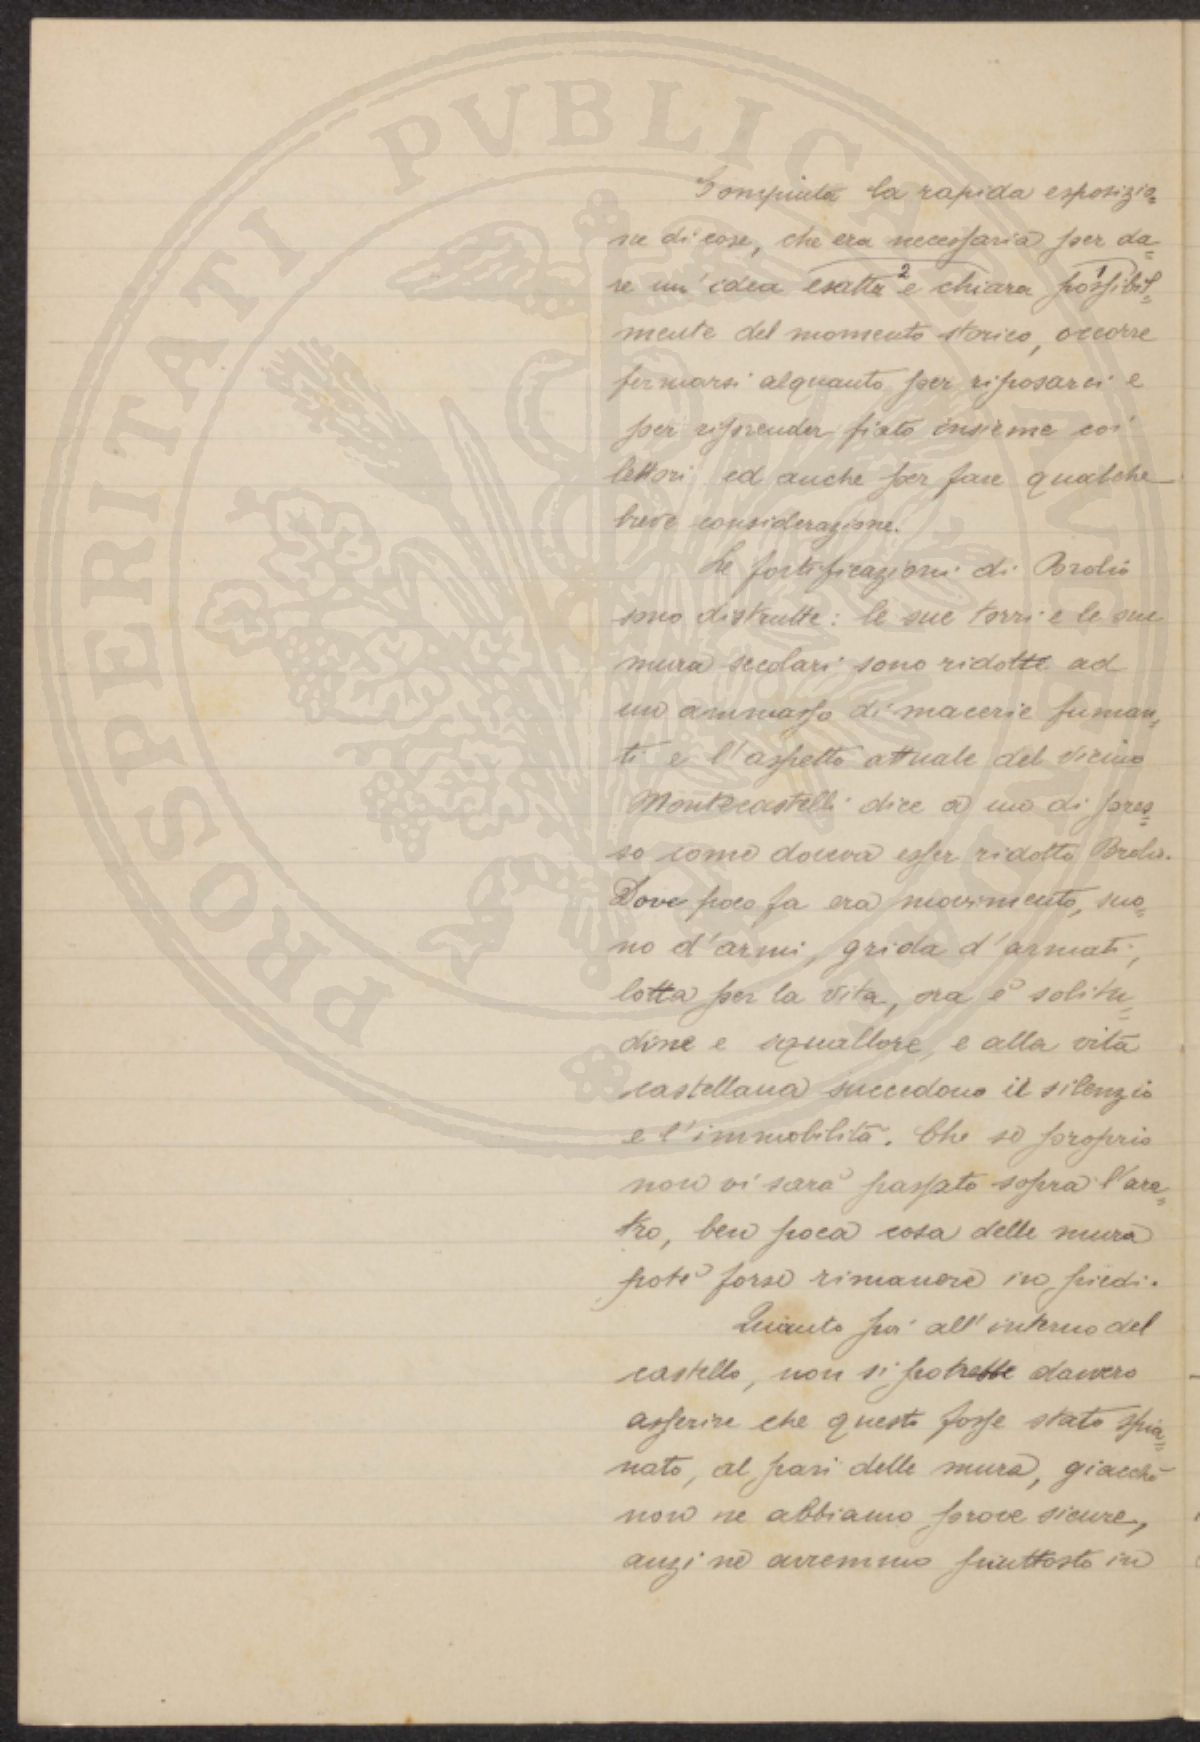 PROSPERITATI PVBLICAE AVGENDAE
Compiuta la rapida esposizio=
ne di cose, che era necessaria per da=
re un' idea esatta 2 e chiara possibil= 1
mente del momento storico, occorre
fermarsi alquanto per riposarci e
per riprender fiato insieme coi
lettori, ed anche per fare qualche
breve considerazione.
Le fortificazioni di Brolio
sono distrutte: le sue torri e le sue
mura secolari sono ridotte ad
un ammasso di macerie fuman=
ti e l'aspetto attuale del vicino
Montecastelli dice a un di pres=
so come doveva esser ridotto Brolio.
Dove poco fa era movimento, suo=
no d'armi, grida d'armati,
lotta per la vita, ora è solitu=
dine e squallore, e alla vita
castellana succedono il silenzio
e l'immobilità. Che se proprio
non vi sarà passato sopra l'ara=
tro, ben poca cosa delle mura
potè forse rimanere in piedi.
Quanto poi all'interno del
castello, non si potrebbe davvero
asserire che questo fosse stato spia=
nato, al pari delle mura, giacchè
non ne abbiamo prove sicure,
anzi ne avremmo piuttosto in